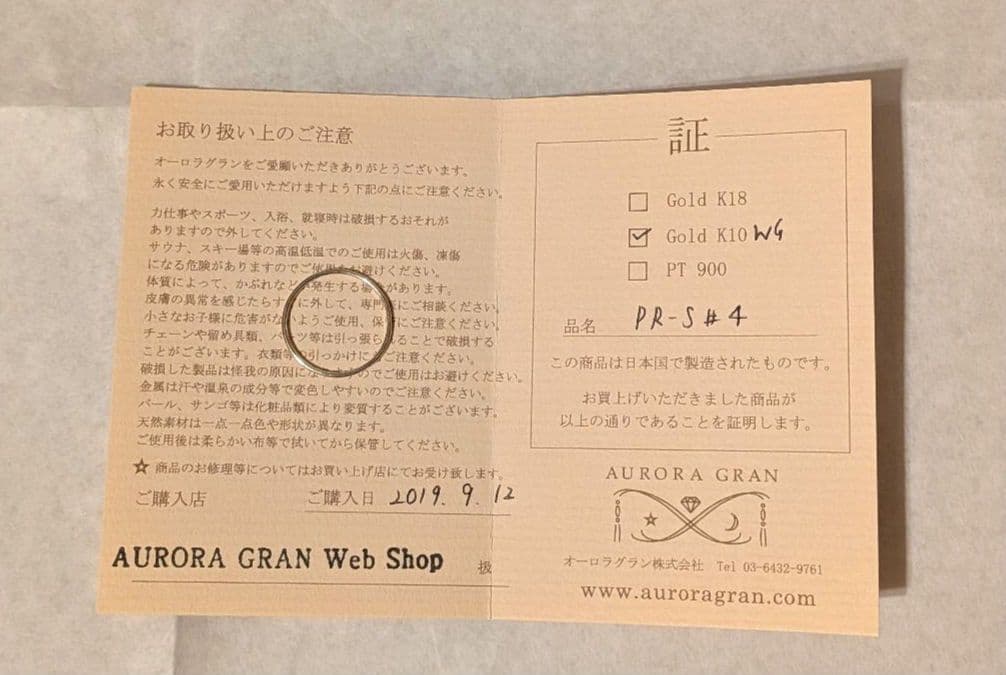 お取り扱い上のご注意
オーロラグランをご愛願いただきありがとうございます。
永く安全にご愛用いただけますよう下記の点にご注意ください。
力仕事やスポーツ、入浴、就寝時は破損するおそれが
ありますので外してください。
サウナ、スキー場等の高温低温でのご使用は火傷、凍傷
になる危険がありますのでご使用をお避けください。
体質によって、かぶれなどが発生する場合があります。
皮膚の異常を感じたらすぐに外して、専門医にご相談ください。
小さなお子様に危害がないようご使用、保管にご注意ください。
チェーンや留め具類、パーツ等は引っ張られることで破損する
ことがございます。衣類等の引っかけにもご注意ください。
破損した製品は怪我の原因になりますのでご使用はお避けください。
金属は汗や温泉の成分等で変色しやすいのでご注意ください。
パール、サンゴ等は化粧品類により変質することがございます。
天然素材は一点一点色や形状が異なります。
ご使用後は柔らかい布等で拭いてから保管してください。
☆ 商品のお修理等についてはお買い上げ店にてお受け致します。
ご購入店 ご購入日 2019. 9. 12
AURORA GRAN Web Shop 扱
証
Gold K18
Gold K10 WG
PT 900
品名 PR-S#4
この商品は日本国で製造されたものです。
お買上げいただきました商品が
以上の通りであることを証明します。
AURORA GRAN
オーロラグラン株式会社 Tel 03-6432-9761
www.auroragran.com